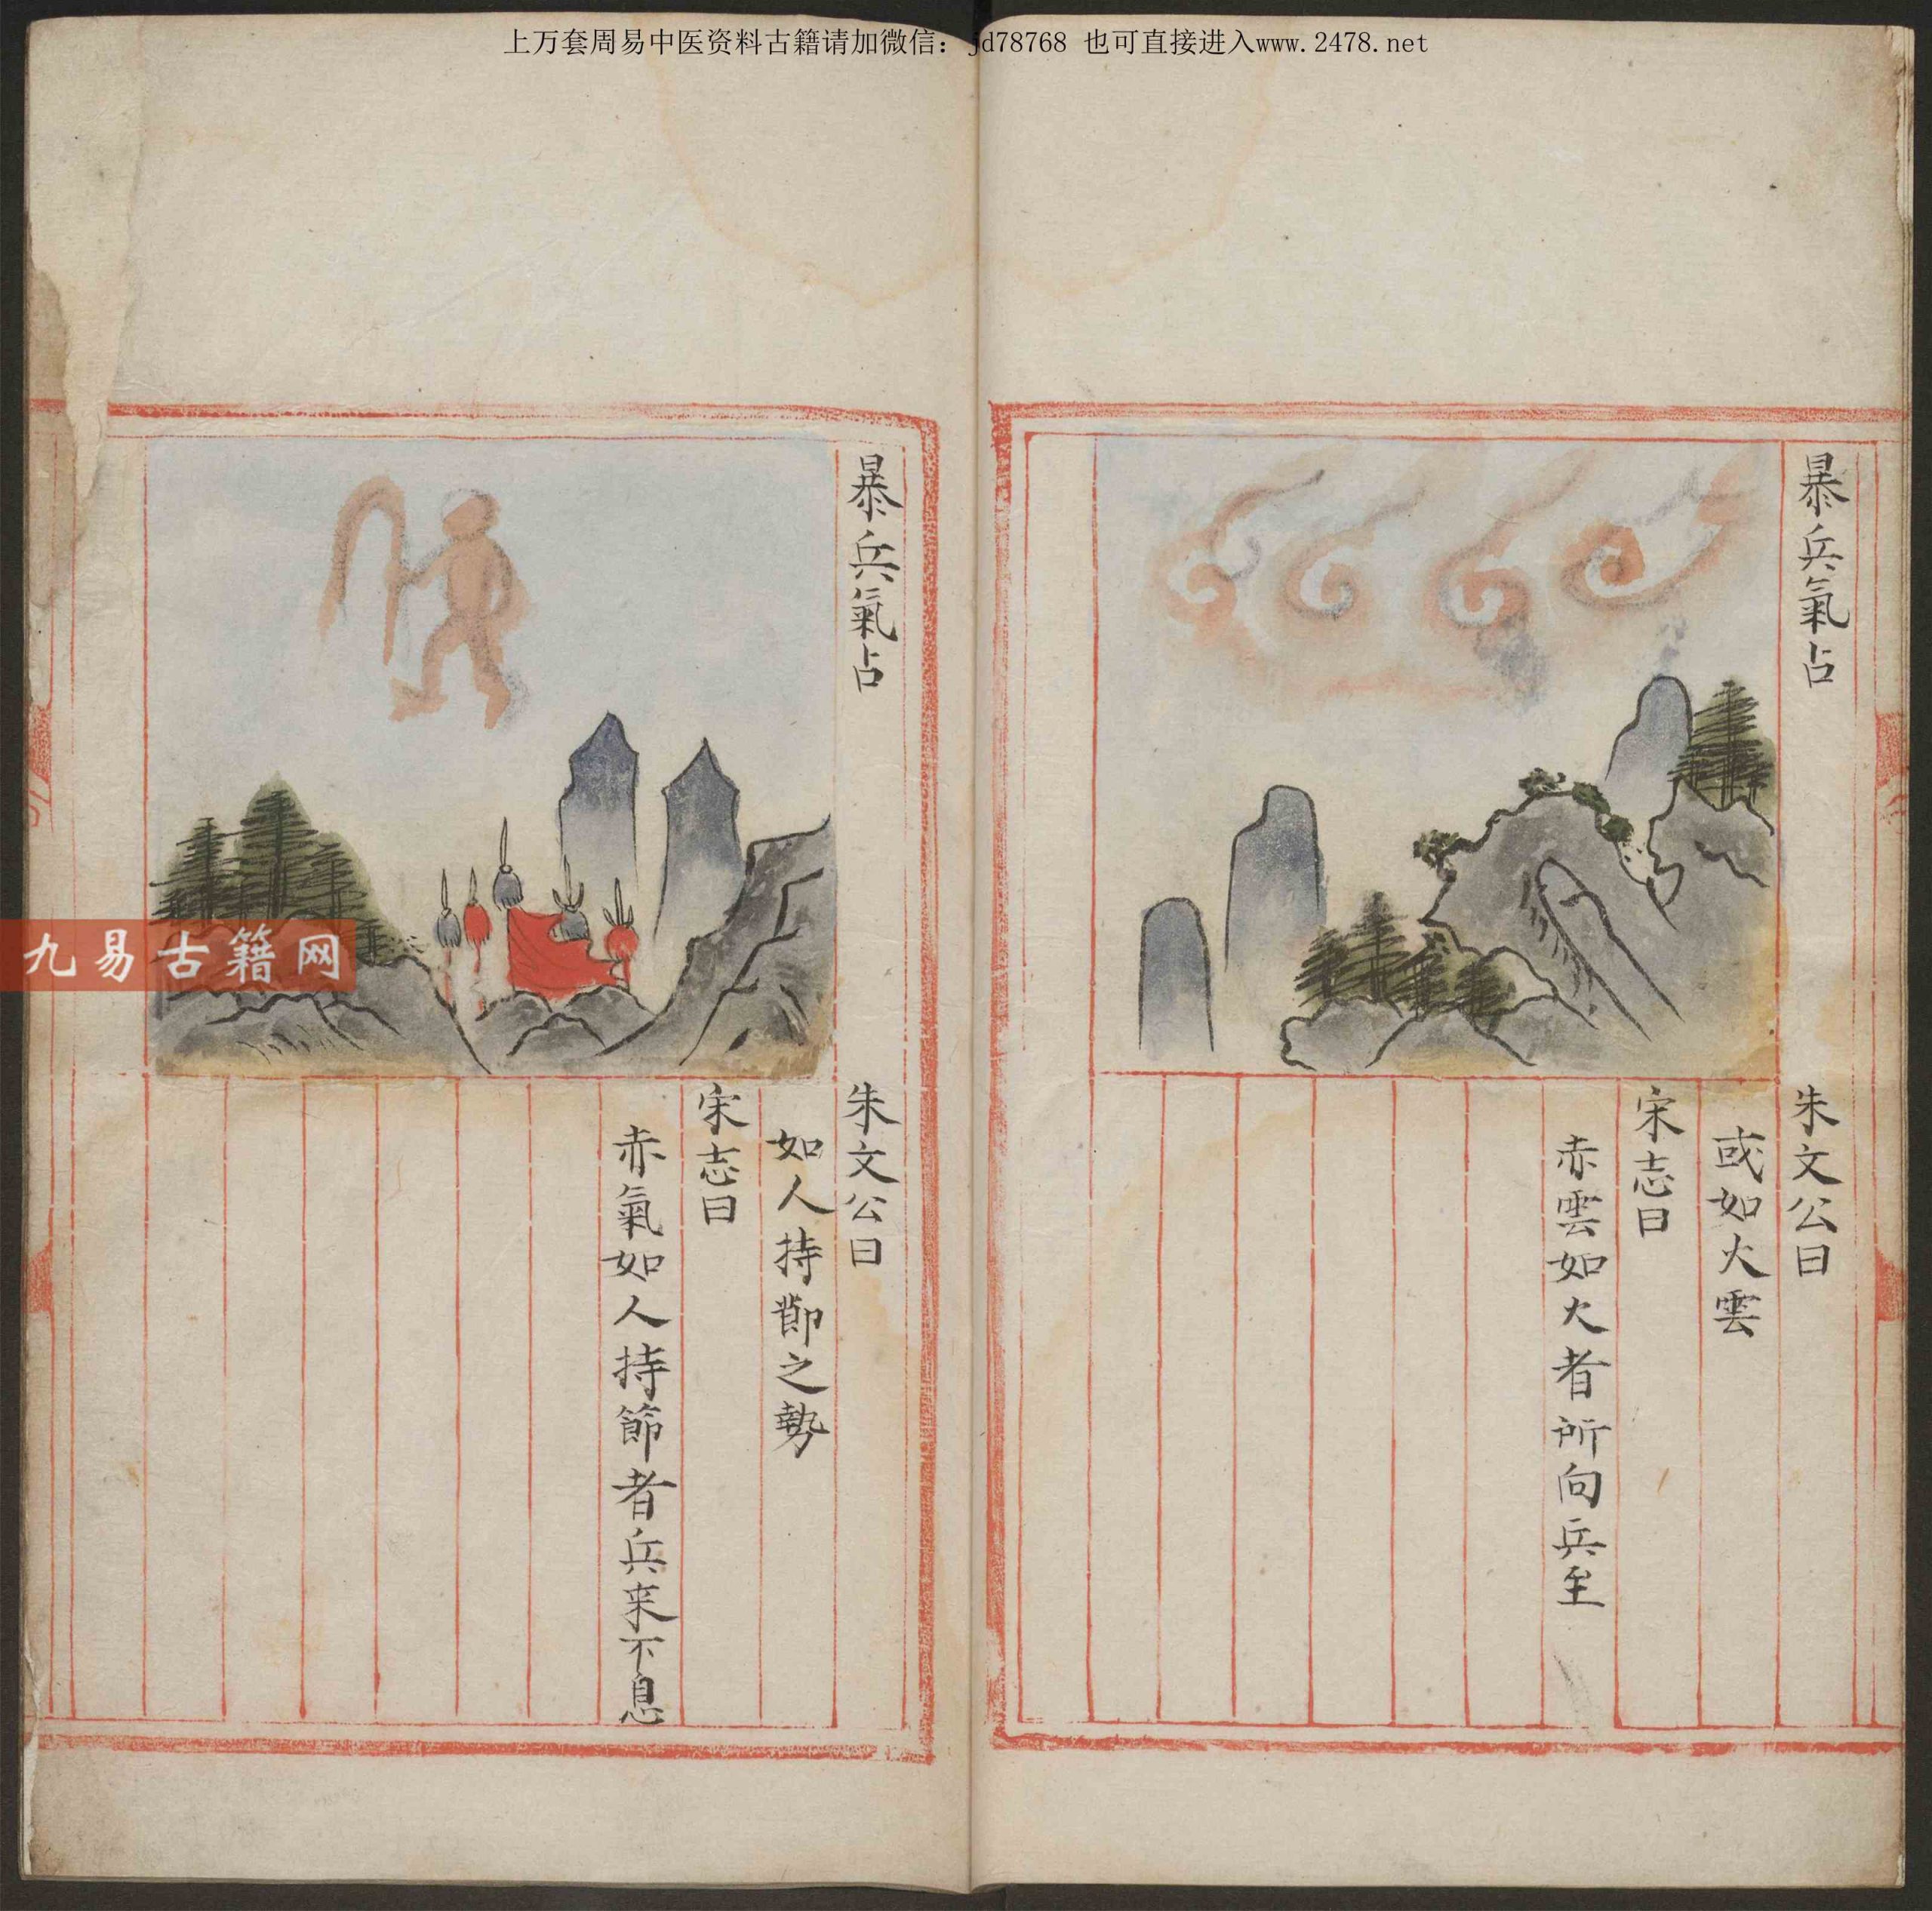 上万套周易中医资料古籍请加微信：jd78768 也可直接进入www.2478.net
暴兵氣占
朱文公曰
或如火雲
宋志曰
赤雲如火者所向兵至
暴兵氣占
朱文公曰
如人持節之勢
宋志曰
赤氣如人持節者兵来不息
九易古籍网